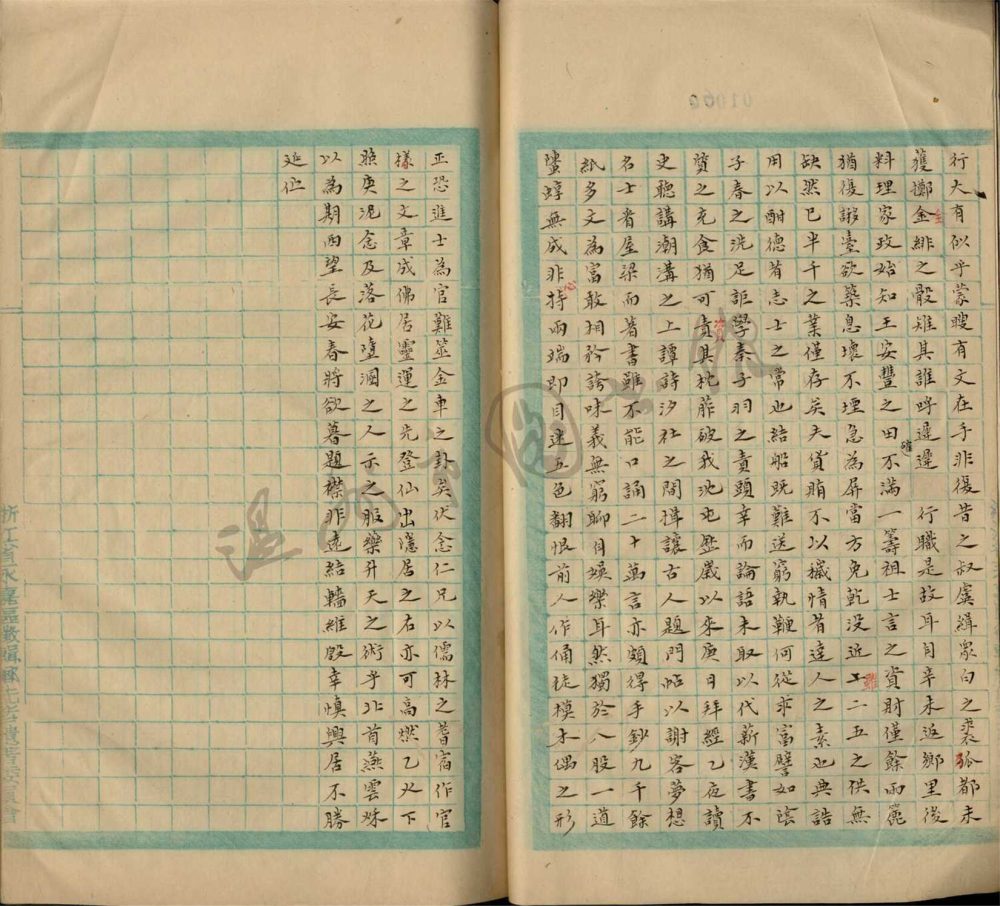 行大有似乎蒙瞍有文在手非復昔之叔虞緝衆白之裘狐都未
獲擲金緋之骰雉其誰呼遑遑行職是故耳目辛未返鄉里後
料理家政始知王安豐之田不滿一籌祖士言之資財僅餘兩簏
猶復謻臺欲築息壞不堙急為屏當方免乾没近工二五之供無
缺然已半千之業僅存矣夫貨賄不以穢情昔達人之素也典誥
用以酣德者志士之常也結船既難送窮執鞭何從求富譬如陰
子春之洗足詎學秦子羽之責頭幸而論語未取以代薪漢書不
質之充食猶可責其枕葄破我沈屯歷歲以來庚日拜經乙夜讀
史聽講潮溝之上譚詩汐社之間揖讓古人題門帖以謝客夢想
名士看屋梁而著書雖不能口誦二十萬言亦頗得手鈔九千餘
紙多文為富敢相矜誇味義無窮聊自娛樂耳然獨於八股一道
蠟蜳無成非持兩端即目迷五色翻恨前人作俑徒模木偶之形
正恐進士為官難筮金車之卦矣伏念仁兄以儒林之耆宿作官
樣之文章成佛居靈運之先登仙出隱居之右亦可高燃乙火下
照庚泥念及落花墮溷之人示之服藥升天之術乎北首燕雲秋
以為期西望長安春將欲暮題襟非遠結轖維殷幸慎興居不勝
延佇
金
確
難
資
心
溫州市圖
01060
浙江省永嘉區徵輯鄉先哲遺著委員會